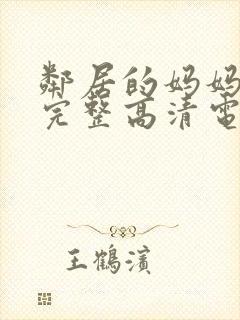 鄰居的妈妈
完整高清電
王鹤濱